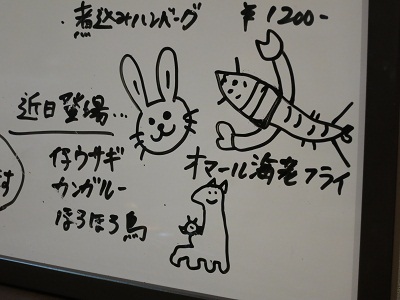 ・煮込みハンバーグ ¥1200-
近日登場...
仔ウサギ
カンガルー
ほろほろ鳥
オマール海老フライ
す